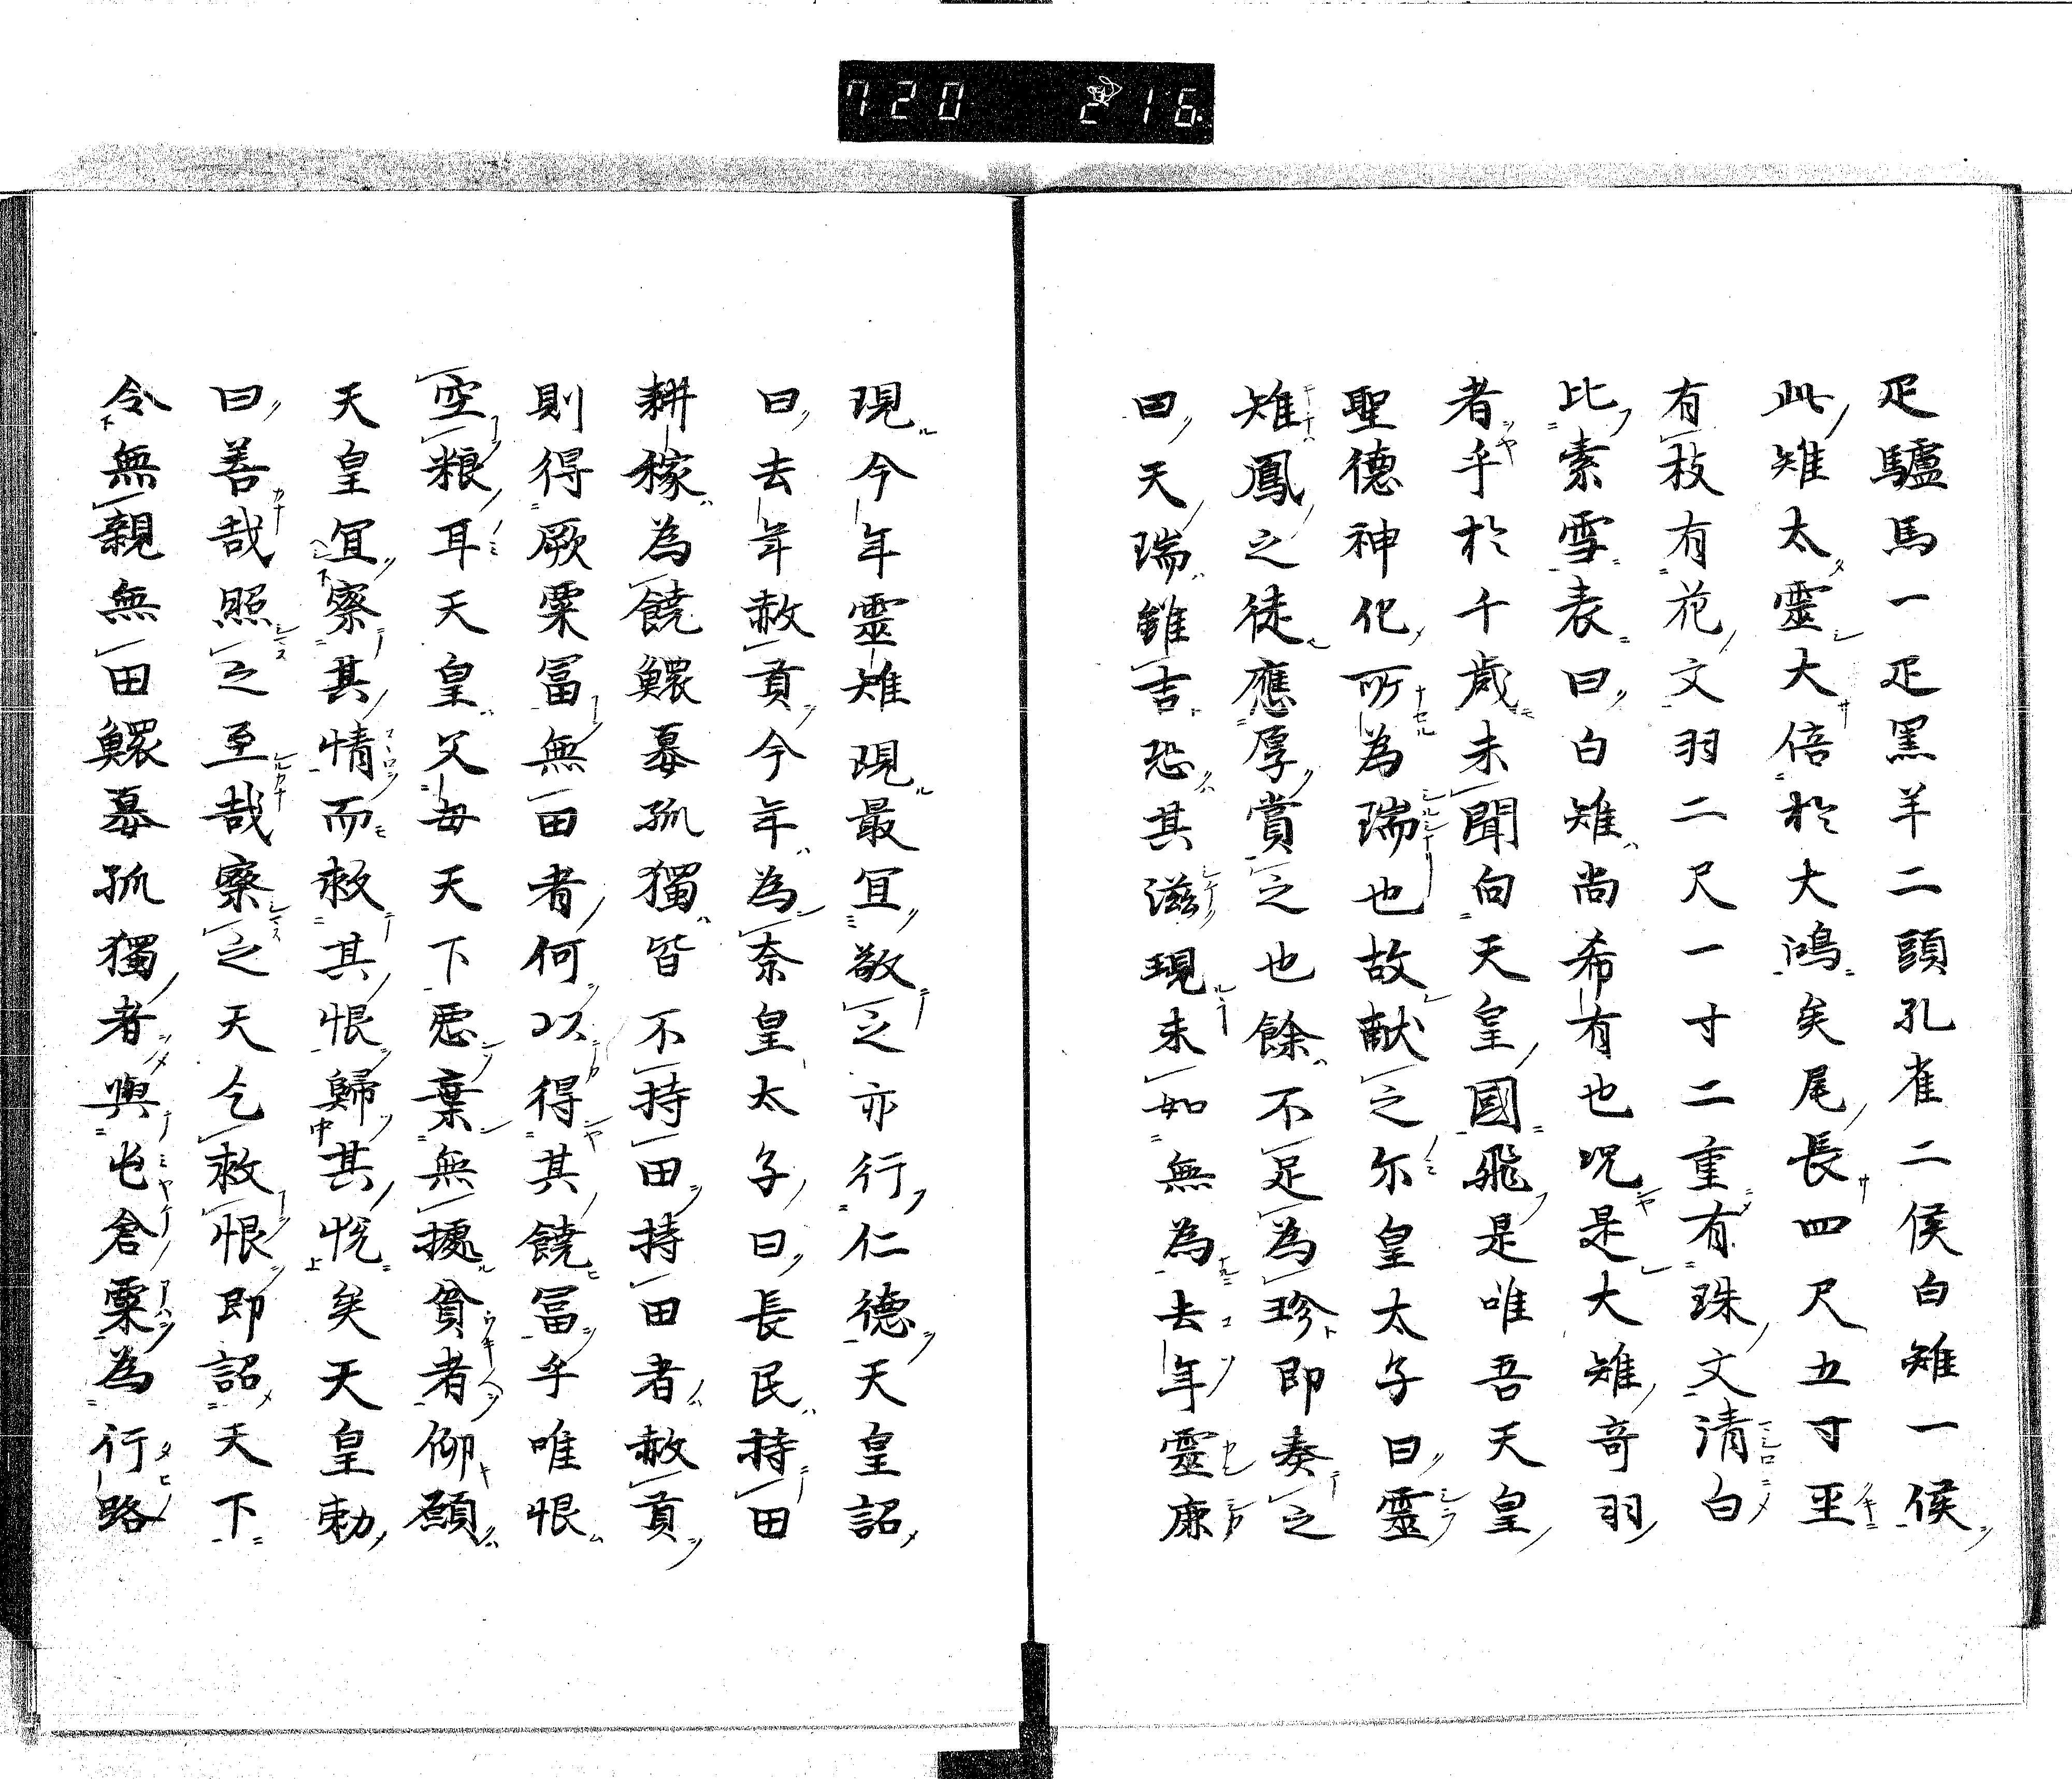 720 216
疋驢馬一疋黒羊二頭孔雀二侯白雉一侯
此雉太靈大倍於大鴻矣尾長四尺五寸至
有枝有花文羽二尺一寸二重有珠文清白
比素雪表曰白雉尚希有也况是大雉奇羽
者乎於千歳未聞向天皇國飛是唯吾天皇
聖德神化所為瑞也故献之尓皇太子曰靈
雉鳳之徒應厚賞之也餘不足為珍即奏之
曰天瑞雖吉恐其滋現未如無為去年靈廉
現今年靈雉現最宜敬之亦行仁德天皇詔
曰去年赦貢今年為奈皇太子曰長民持田
耕稼為饒鰥寡孤獨皆不持田持田者赦貢
則得厥粟冨無田者何以得其饒冨乎唯恨
空粮耳天皇父毎天下悪棄無擾貧者仰願
天皇宜察其情而救其恨歸其恱矣天皇勅
曰善哉照之至哉察之天乞救恨即詔天下
令無親無田鰥寡孤獨者與屯倉粟為行路